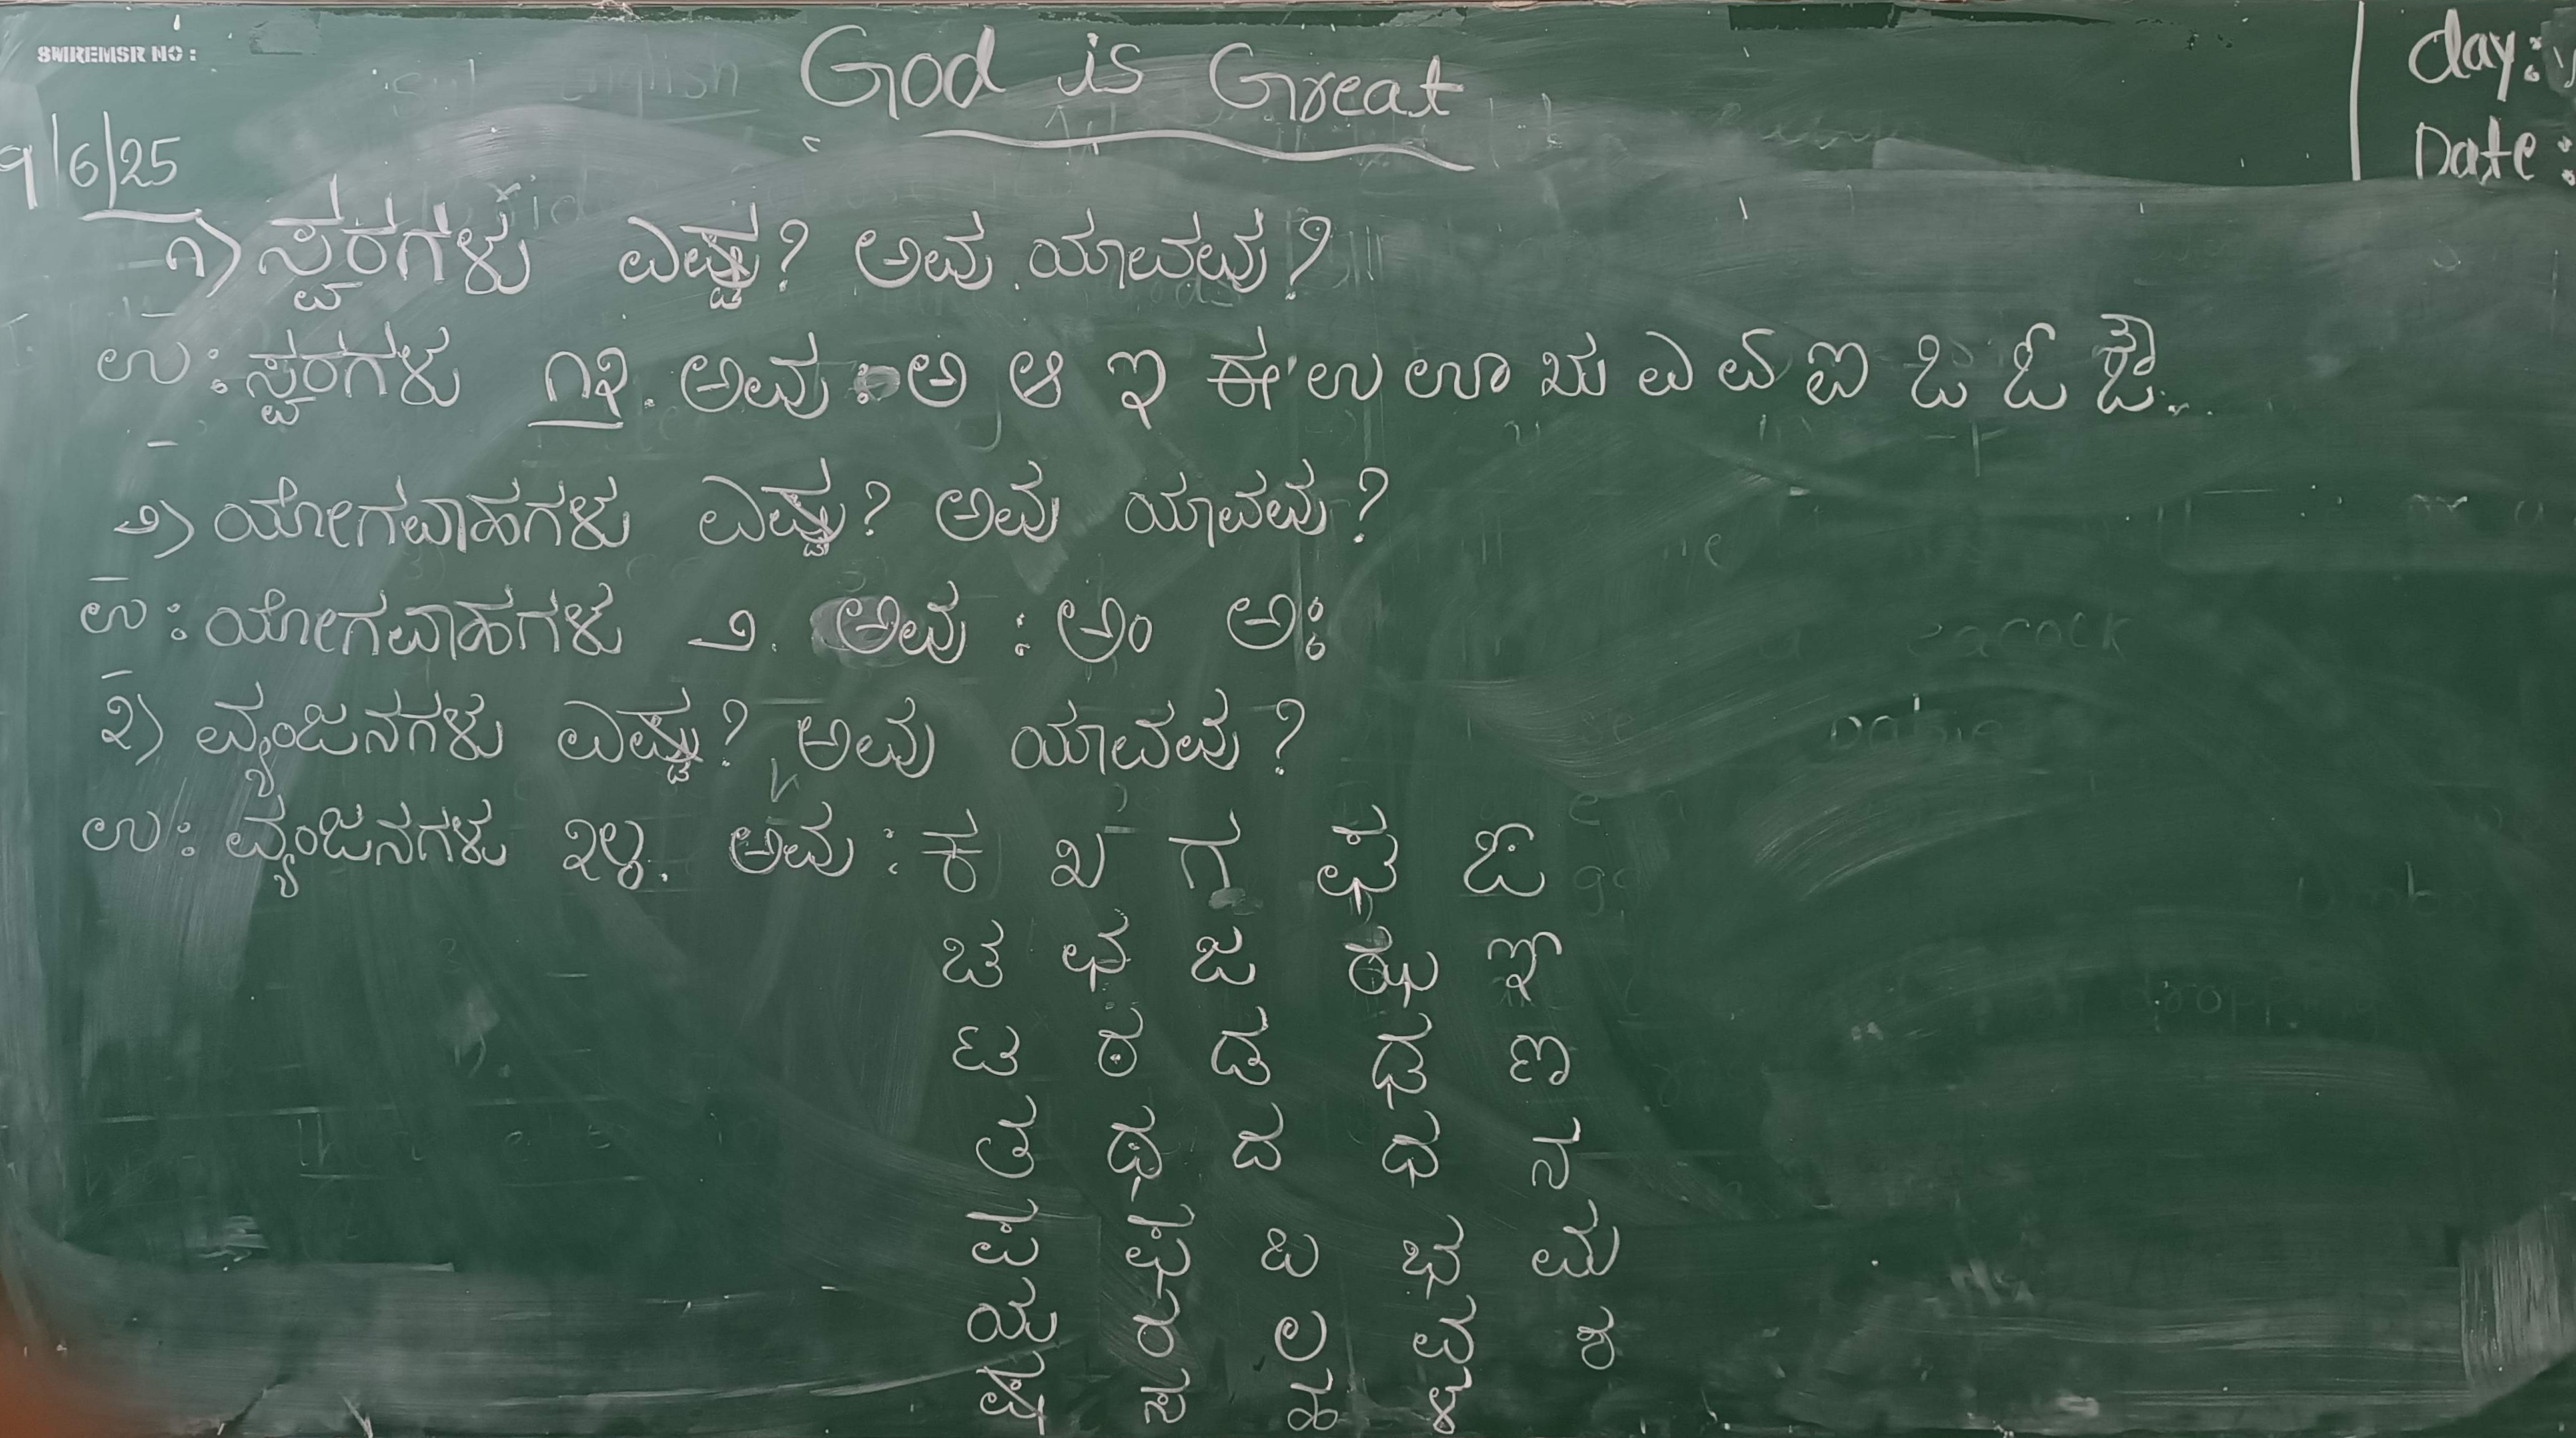 SMREMSR NO :
God is Great
day:
Date:
9/6/25
೧) ಸ್ವರಗಳು ಎಷ್ಟು? ಅವು ಯಾವವು?
ಉ: ಸ್ವರಗಳು ೧೩. ಅವು: ಅ ಆ ಇ ಈ ಉ ಊ ಋ ಎ ಏ ಐ ಒ ಓ ಔ.
೨) ಯೋಗವಾಹಗಳು ಎಷ್ಟು? ಅವು ಯಾವವು?
ಉ: ಯೋಗವಾಹಗಳು ೨. ಅವು : ಅಂ ಅಃ
೩) ವ್ಯಂಜನಗಳು ಎಷ್ಟು? ಅವು ಯಾವವು?
ಉ: ವ್ಯಂಜನಗಳು ೩೪. ಅವು : ಕ ಖ ಗ ಘ ಙ
ಚ ಛ ಜ ಝ ಞ
ಟ ಠ ಡ ಢ ಣ
ತ ಥ ದ ಧ ನ
ಪ ಫ ಬ ಭ ಮ
ಯ ರ ಲ ವ ಶ
ಷ ಸ ಹ ಳ